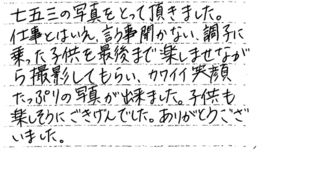 七五三の写真をとって頂きました。
仕事とはいえ、言う事聞かない、調子に
乗った子供を最後まで楽しませなが
ら撮影してもらい、カワイイ笑顔
たっぷりの写真が出来ました。子供も
楽しそうにごきげんでした。ありがとうござ
いました。